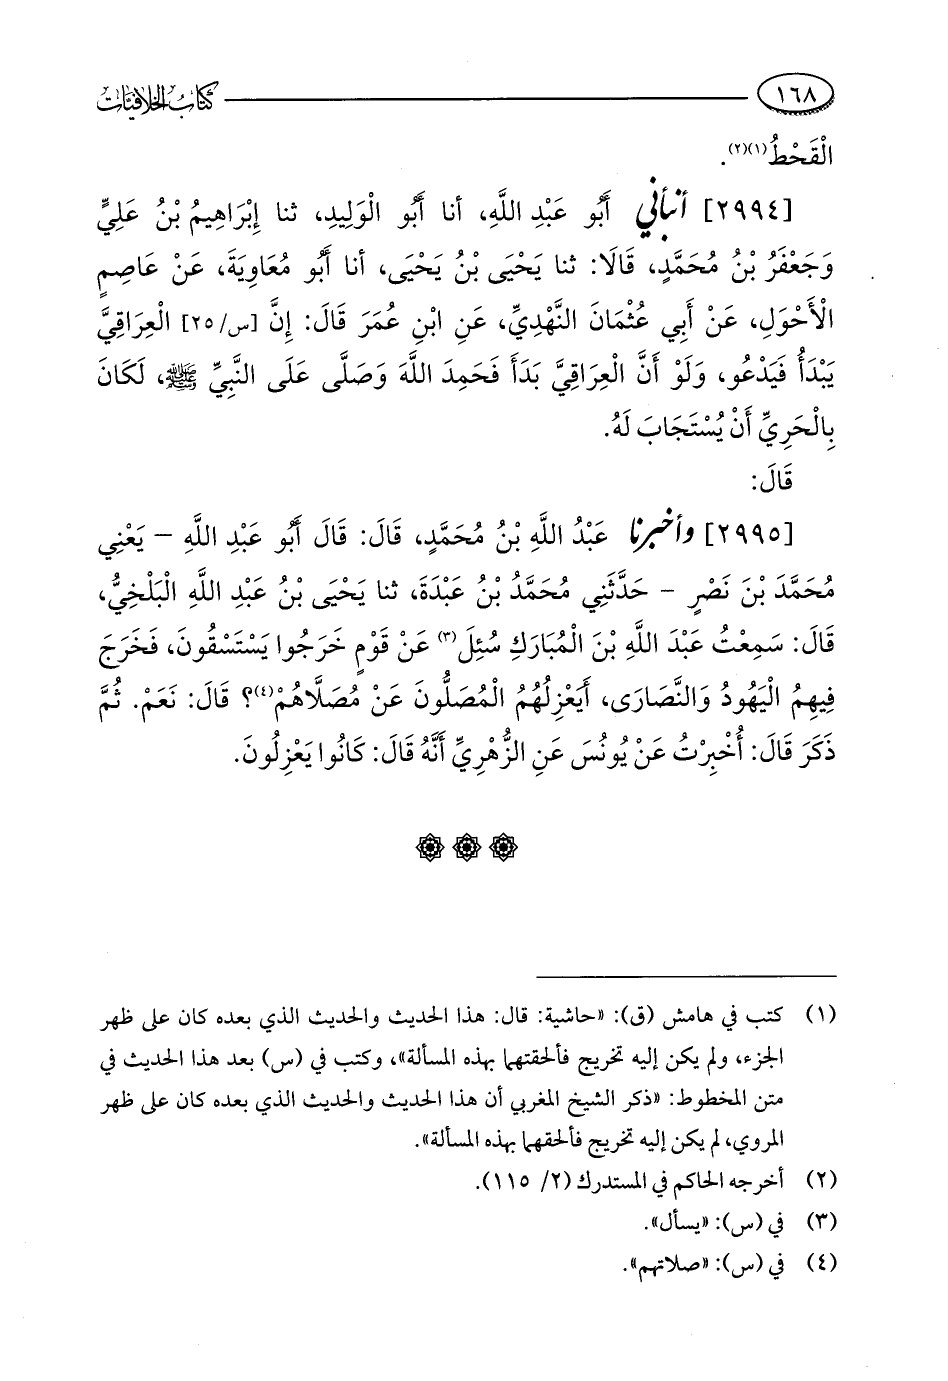 ١٦٨ كتاب الخلافيات
الْقَحْطُ(١)(٢).
[٢٩٩٤] أنبأني أَبُو عَبْدِ اللَّهِ، أنا أَبُو الْوَلِيدِ، ثنا إِبْرَاهِيمُ بْنُ عَلِيٍّ
وَجَعْفَرُ بْنُ مُحَمَّدٍ، قَالَا: ثنا يَحْيَى بْنُ يَحْيَى، أنا أَبُو مُعَاوِيَةَ، عَنْ عَاصِمٍ
الْأَحْوَلِ، عَنْ أَبِي عُثْمَانَ النَّهْدِيِّ، عَنِ ابْنِ عُمَرَ قَالَ: إِنَّ [س/٢٥] الْعِرَاقِيَّ
يَبْدَأُ فَيَدْعُو، وَلَوْ أَنَّ الْعِرَاقِيَّ بَدَأَ فَحَمِدَ اللَّهَ وَصَلَّى عَلَى النَّبِيِّ ﷺ، لَكَانَ
بِالْحَرِيِّ أَنْ يُسْتَجَابَ لَهُ.
قَالَ:
[٢٩٩٥] وأخبرنا عَبْدُ اللَّهِ بْنُ مُحَمَّدٍ، قَالَ: قَالَ أَبُو عَبْدِ اللَّهِ - يَعْنِي
مُحَمَّدَ بْنَ نَصْرٍ - حَدَّثَنِي مُحَمَّدُ بْنُ عَبْدَةَ، ثنا يَحْيَى بْنُ عَبْدِ اللَّهِ الْبَلْخِيُّ،
قَالَ: سَمِعْتُ عَبْدَ اللَّهِ بْنَ الْمُبَارَكِ سُئِلَ(٣) عَنْ قَوْمٍ خَرَجُوا يَسْتَسْقُونَ، فَخَرَجَ
فِيهِمُ الْيَهُودُ وَالنَّصَارَى، أَيَعْزِلُهُمُ الْمُصَلُّونَ عَنْ مُصَلَّاهُمْ(٤)؟ قَالَ: نَعَمْ. ثُمَّ
ذَكَرَ قَالَ: أُخْبِرْتُ عَنْ يُونُسَ عَنِ الزُّهْرِيِّ أَنَّهُ قَالَ: كَانُوا يَعْزِلُونَ.
(١) كتب في هامش (ق): «حاشية: قال: هذا الحديث والحديث الذي بعده كان على ظهر
الجزء، ولم يكن إليه تخريج فألحقتهما بهذه المسألة»، وكتب في (س) بعد هذا الحديث في
متن المخطوط: «ذكر الشيخ المغربي أن هذا الحديث والحديث الذي بعده كان على ظهر
المروي، لم يكن إليه تخريج فألحقهما بهذه المسألة».
(٢) أخرجه الحاكم في المستدرك (٢/ ١١٥).
(٣) في (س): «يسأل».
(٤) في (س): «صلاتهم».